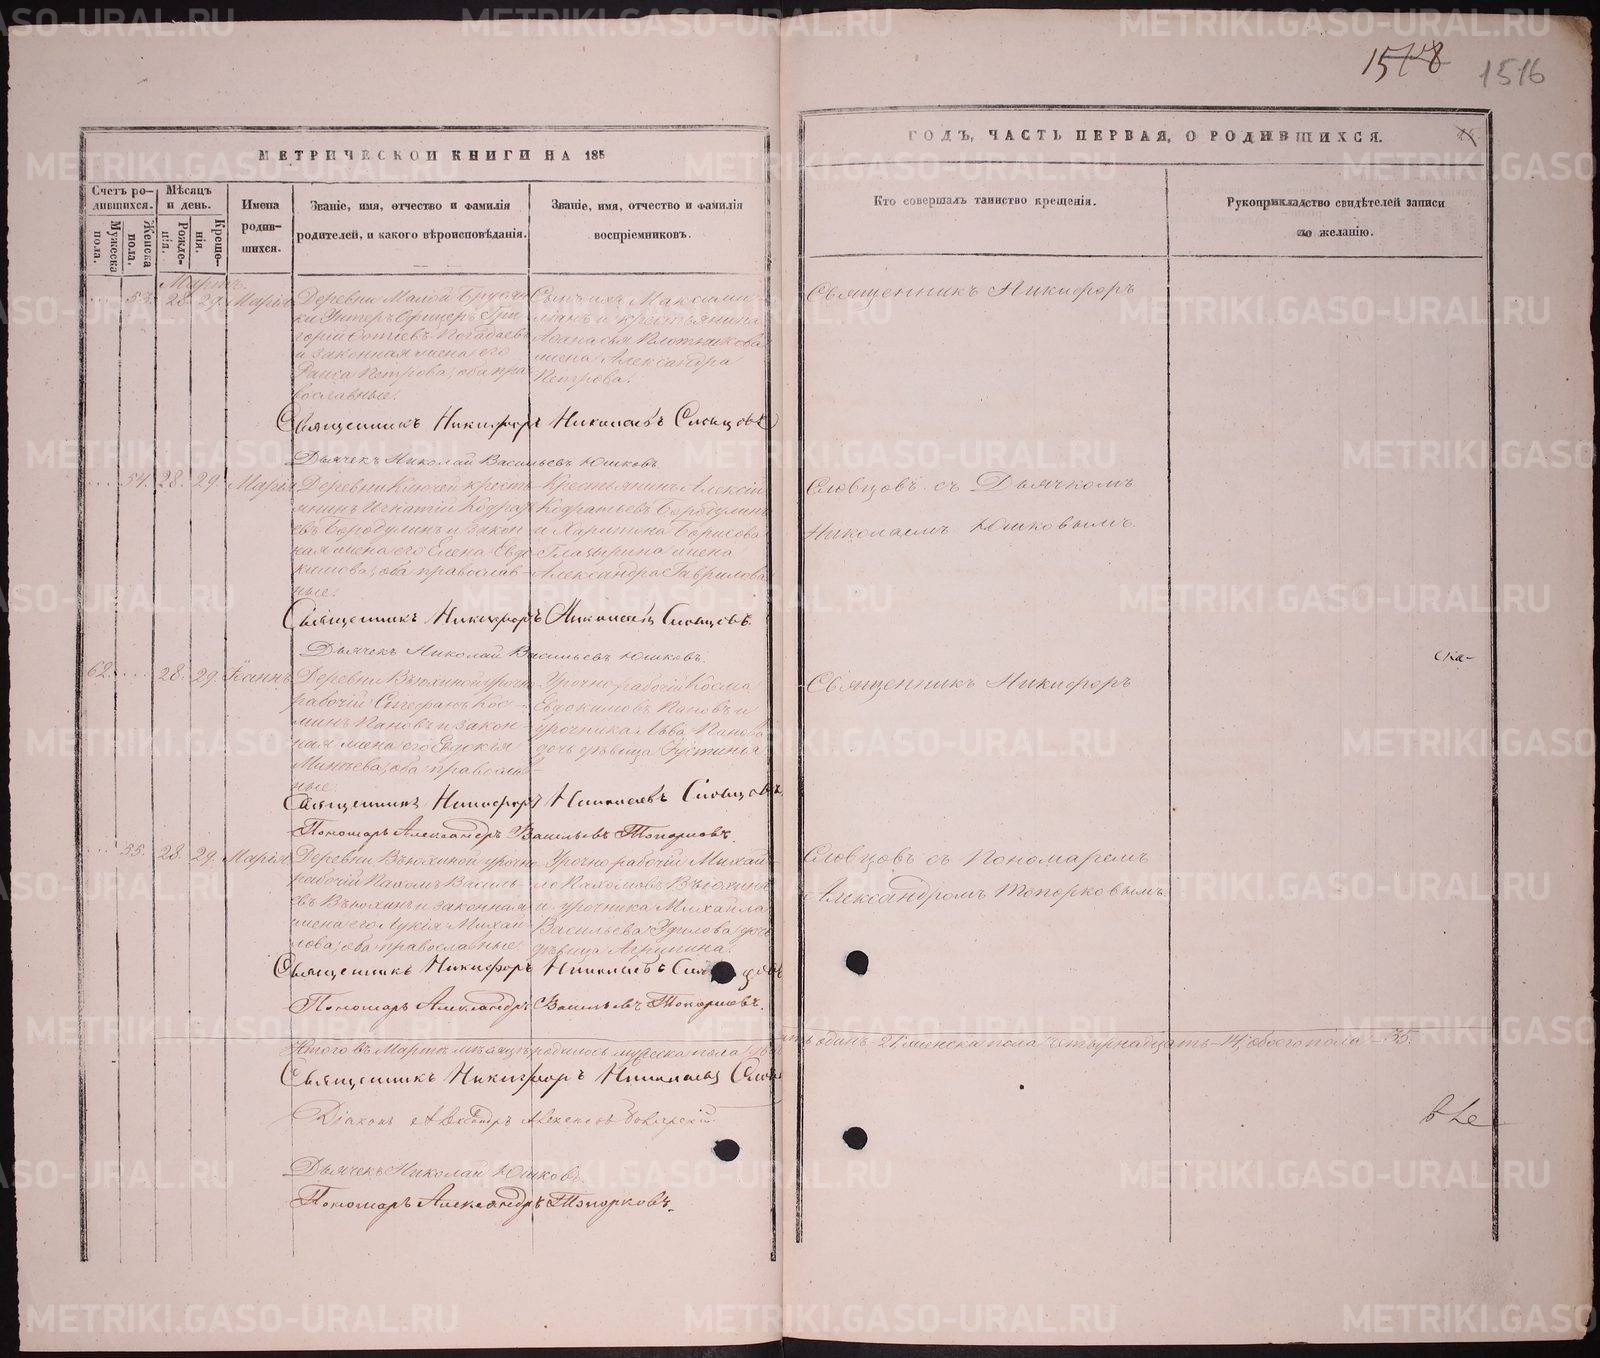 1518
1516
МЕТРИЧЕСКОЙ КНИГИ НА 185
ГОДЪ, ЧАСТЬ ПЕРВАЯ, О РОДИВШИХСЯ.
Счетъ ро-
дившихся.
Мужеска пола.
Женска пола.
Мѣсяцъ
и день.
Рожде-
нія.
Креще-
нія.
Имена
родив-
шихся.
Званіе, имя, отчество и фамилія
родителей, и какого вѣроисповѣданія.
Званіе, имя, отчество и фамилія
воспріемниковъ.
Кто совершалъ таинство крещенія.
Рукоприкладство свидѣтелей записи
по желанію.
Мартъ
53. 28. 29. Марія
Деревни Малой Брусян-
ки Унтеръ Офицеръ Гри-
горій Фотіевъ Погадаевъ
и законная жена его
Раиса Петрова, оба пра-
вославные.
Сынъ ихъ Максими-
ліанъ и крестьянина
Афанасья Плотникова
жена Александра
Петрова.
Священникъ Никифоръ
Священникъ Никифоръ Николаевъ Словцовъ
Дьячекъ Николай Васильевъ Юшковъ.
54. 28. 29. Марія
Деревни Ключей кресть-
янинъ Игнатій Кодрат-
евъ Бородулинъ и закон-
ная жена его Елена Евдо-
кимова, оба православ-
ные.
Крестьянинъ Алексій
Кодратьевъ Бородулинъ
и Харитона Борисова
жена
Александра Гаврилова
Словцовъ съ Дьячкомъ
Николаемъ Юшковымъ.
Священникъ Никифоръ Николаевъ Словцовъ.
Дьячекъ Николай Васильевъ Юшковъ.
62. 28. 29. Іоаннъ
Деревни Вьюхиной урочно
рабочій Стефанъ Кос-
минъ Пановъ и закон-
ная жена его Евдокія
Минѣева, оба православ-
ные.
Урочнорабочій Косма
Евдокимовъ Пановъ и
урочника Льва Панова
дочь дѣвица Устинья
Священникъ Никифоръ
Священникъ Никифоръ Николаевъ Словцовъ
Пономарь Александръ Васильевъ Топорковъ.
55. 28. 29. Марія
Деревни Вьюхиной урочно
рабочій Пахомъ Василь-
евъ Вьюхинъ и законная
жена его Лукія Михаи-
лова, оба православные.
Урочно рабочій Михаи-
ло Пахомовъ Вьюхинъ
и урочника Михаила
Васильева дочь
дѣвица Агрипина.
Словцовъ съ Пономаремъ
Александромъ Топорковымъ.
Священникъ Никифоръ Николаевъ Словцовъ
Пономарь Александръ Васильевъ Топорковъ.
Итого въ Мартѣ мѣсяцѣ родилось мужеска пола двад-
ать одинъ-21, женска пола четырнадцать-14, обоего пола-35.
Священникъ Никифоръ Николаевъ Слов
Діаконъ
Дьячекъ Николай Юшковъ.
Пономарь Александръ Топорковъ.
ска-
METRIKI.GASO-URAL.RU